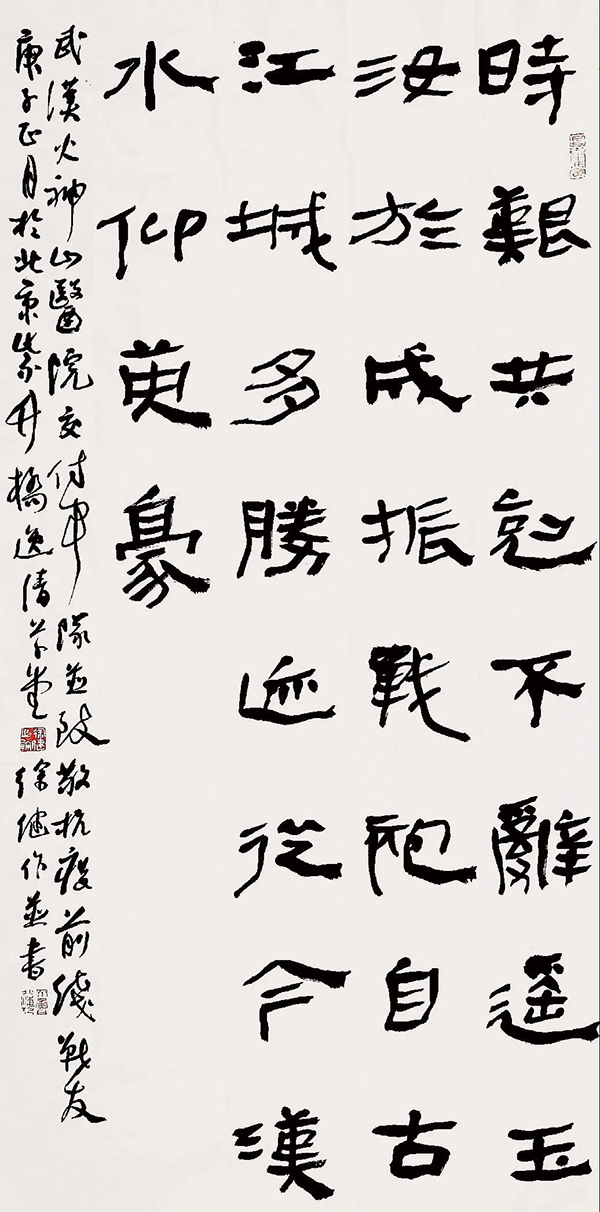 時艱共尅不辭遥玉
汝於成振戰袍自古
江城多勝迹從今漢
水仰英豪
武漢火神山醫院交付軍隊並致敬抗疫前綫戰友
庚子正月於北京紫竹橋逸清草堂徐健作並書